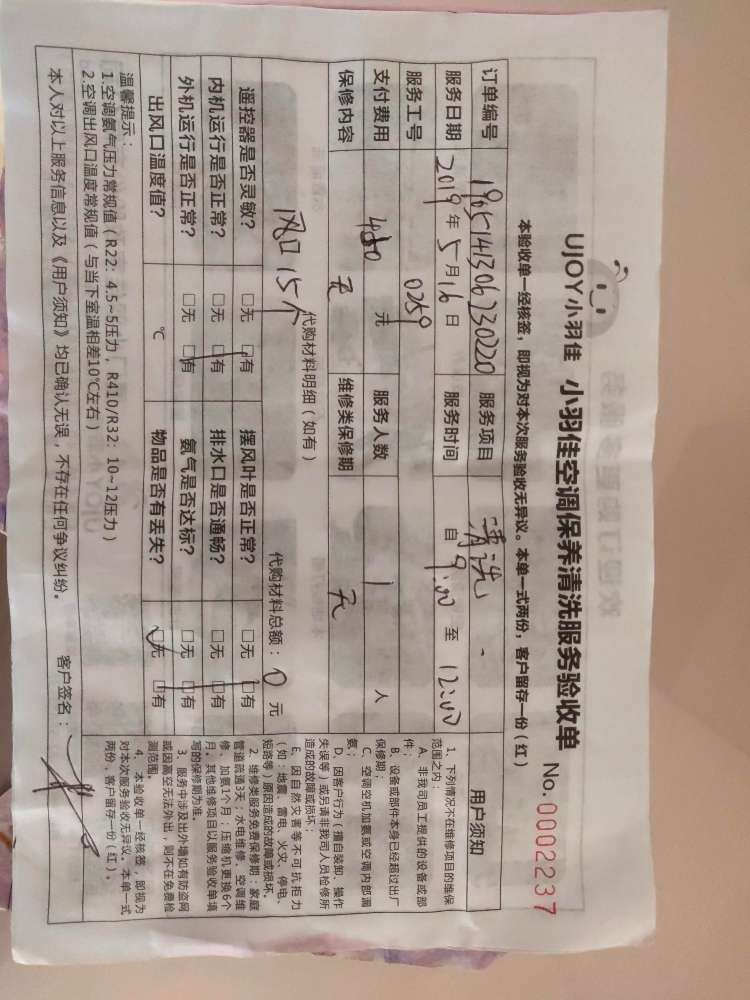 UJOY小羽佳 小羽佳空调保养清洗服务验收单 No. 0002237
本验收单一经核签，即视为对本次服务验收无异议。本单一式两份，客户留存一份（红）
订单编号 服务项目 清洗
服务日期 2019年5月16日 服务时间 自 9:00 至 12:00
服务工号 0259
支付费用 元 服务人数 1 人
保修内容 无 维修类保修期 无
代购材料明细（如有） 代购材料总额：0 元
风口15个
遥控器是否灵敏？ □无 □有 摆风叶是否正常？ □无 □有
内机运行是否正常？ □无 □有 排水口是否通畅？ □无 □有
外机运行是否正常？ □无 □有 氨气是否达标？ □无 □有
出风口温度值？ ℃ 物品是否有丢失？ □无 □有
用户须知
1、下列情况不在维修项目的维保
范围之内：
A、非我司员工提供的设备或部
件；
B、设备或部件本身已经超过出厂
保修期；
C、空调空机加氨或空调内部漏
氨；
D、因客户行为（擅自装卸、操作
失误等）或另请非我司人员检修所
造成的故障或损坏；
E、因自然灾害等不可抗拒力
（如：地震、雷电、火灾、停电、
短路等）原因造成的故障或损坏。
2、维修类服务免费保修期：家庭
管道疏通3天；水电维修、空调维
修、加氨1个月；压缩机更换6个
月。其他维修项目以服务验收单填
写的保修期为准。
3、服务中涉及出外墙如有防盗网
或因高空无法外出，则不在免费检
测范围。
4、本验收单一经核签，即视为
对本次服务验收无异议。本单一式
两份，客户留存一份（红）。
温馨提示：
1.空调氨气压力常规值（R22: 4.5~5压力，R410/R32: 10~12压力）
2.空调出风口温度常规值（与当下室温相差10℃左右）
本人对以上服务信息以及《用户须知》均已确认无误，不存在任何争议纠纷。 客户签名：